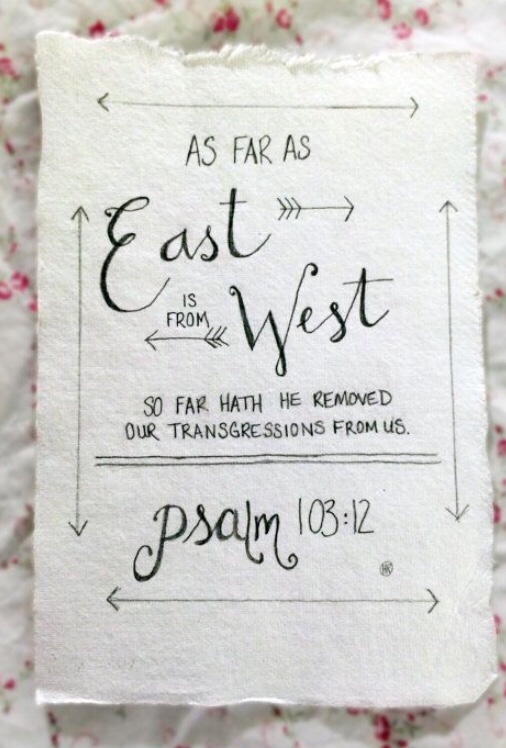 AS FAR AS
East
IS
FROM
West
SO FAR HATH HE REMOVED
OUR TRANSGRESSIONS FROM US.
psalm 103:12